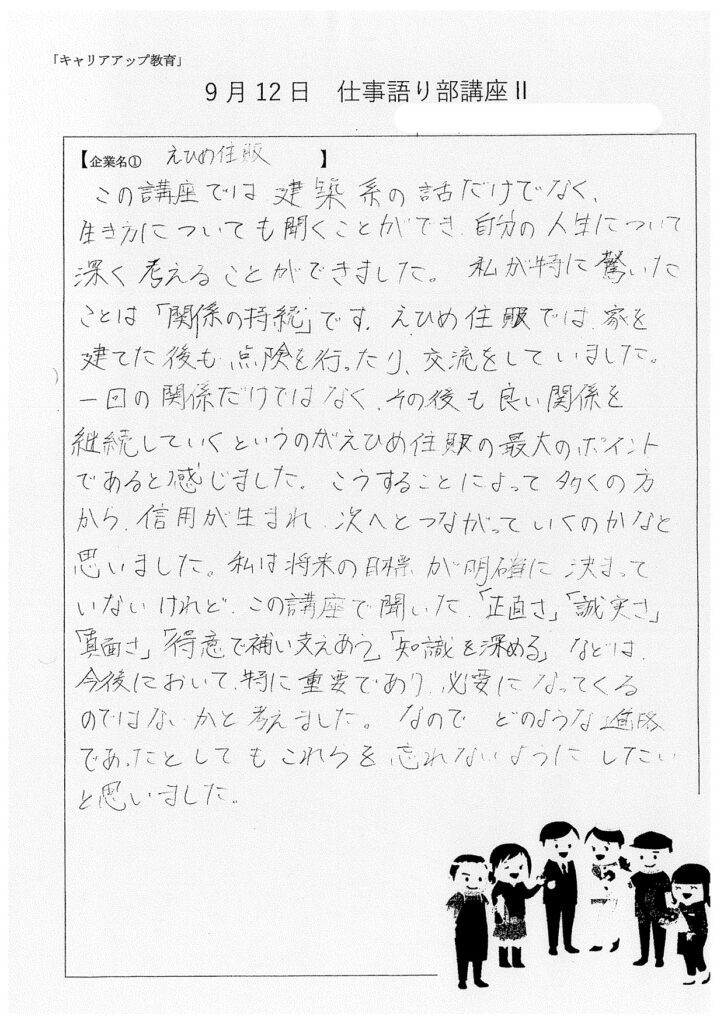 「キャリアアップ教育」
9月12日　仕事語り部講座Ⅱ
【企業名① えひめ住販 】
この講座では建築系の話だけでなく、
生き方についても聞くことができ、自分の人生について
深く考えることができました。私が特に驚いた
ことは「関係の持続」です。えひめ住販では、家を
建てた後も点険を行ったり、交流をしていました。
一回の関係だけではなく、その後も良い関係を
継続していくというのがえひめ住販の最大のポイント
であると感じました。こうすることによって多くの方
から、信用が生まれ、次へとつながっていくのかなと
思いました。私は将来の目標が明確に決まって
いないけれど、この講座で聞いた、「正直さ」「誠実さ」
「真面さ」「得意で補い支えあう」「知識を深める」などは、
今後において、特に重要であり、必要になってくる
のではないかと考えました。なので どのような進路
であったとしても これらを忘れないようにしたい
と思いました。